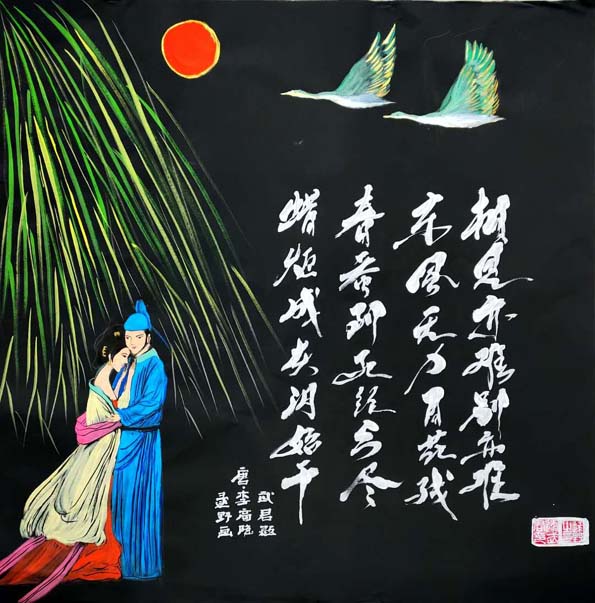 相见亦难别亦难
东风无力百花残
春蚕到死丝方尽
蜡炬成灰泪始干
武君题
唐·李商隐
野画